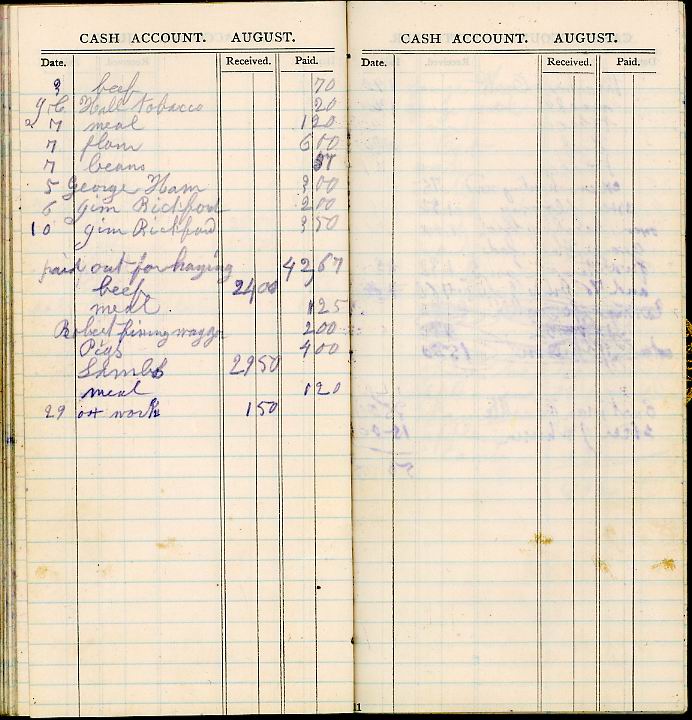 CASH ACCOUNT. AUGUST.
Date. Received. Paid.
3 beef 70
Hall tobacco 20
7 meal 1 20
7 flour 6 00
7 beans 37
5 George Ham 3 00
6 Jim Rickford 2 00
10 Jim Rickford 3 50
paid out for haying 42,67
beef 24,00
meal 1 25
Robert wagg 2 00
Pigs 4 00
Lambs 29 50
meal 1 20
29 ox work 1 50
CASH ACCOUNT. AUGUST.
Date. Received. Paid.
11